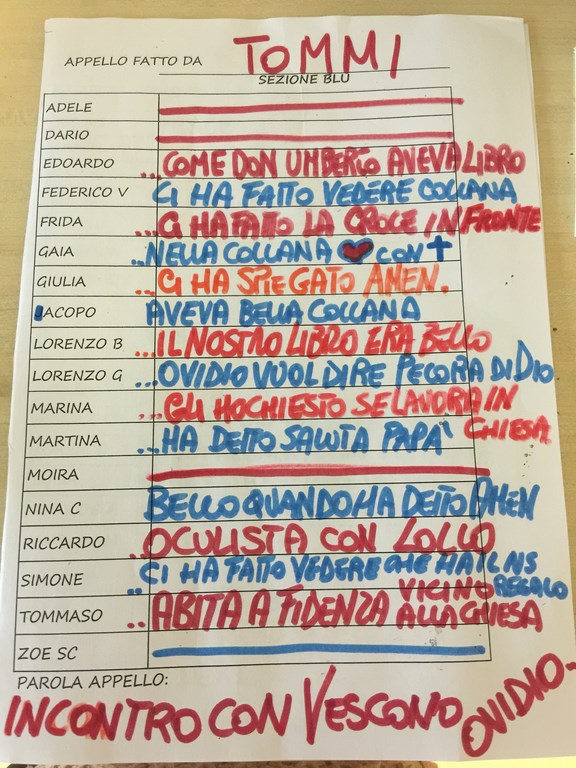 APPELLO FATTO DA TOMMI
SEZIONE BLU
ADELE
DARIO
EDOARDO ...COME DON UMBERTO AVEVA LIBRO
FEDERICO V CI HA FATTO VEDERE COLLANA
FRIDA ...CI HA FATTO LA CROCE IN FRONTE
GAIA ..NELLA COLLANA ❤ CON ✝
GIULIA ...CI HA SPIEGATO AMEN.
JACOPO AVEVA BELLA COLLANA
LORENZO B ...IL NOSTRO LIBRO ERA BELLO
LORENZO G ...OVIDIO VUOL DIRE PECORA DI DIO
MARINA ...GLI HO CHIESTO SE LAVORA IN CHIESA
MARTINA ..HA DETTO SALUTA PAPA'
MOIRA
NINA C BELLO QUANDO HA DETTO AMEN
RICCARDO ..OCULISTA CON LOLLO
SIMONE ..CI HA FATTO VEDERE CHE HA IL NS REGALO
TOMMASO ..ABITA A FIDENZA VICINO ALLA CHIESA
ZOE SC
PAROLA APPELLO:
INCONTRO CON VESCOVO OVIDIO-